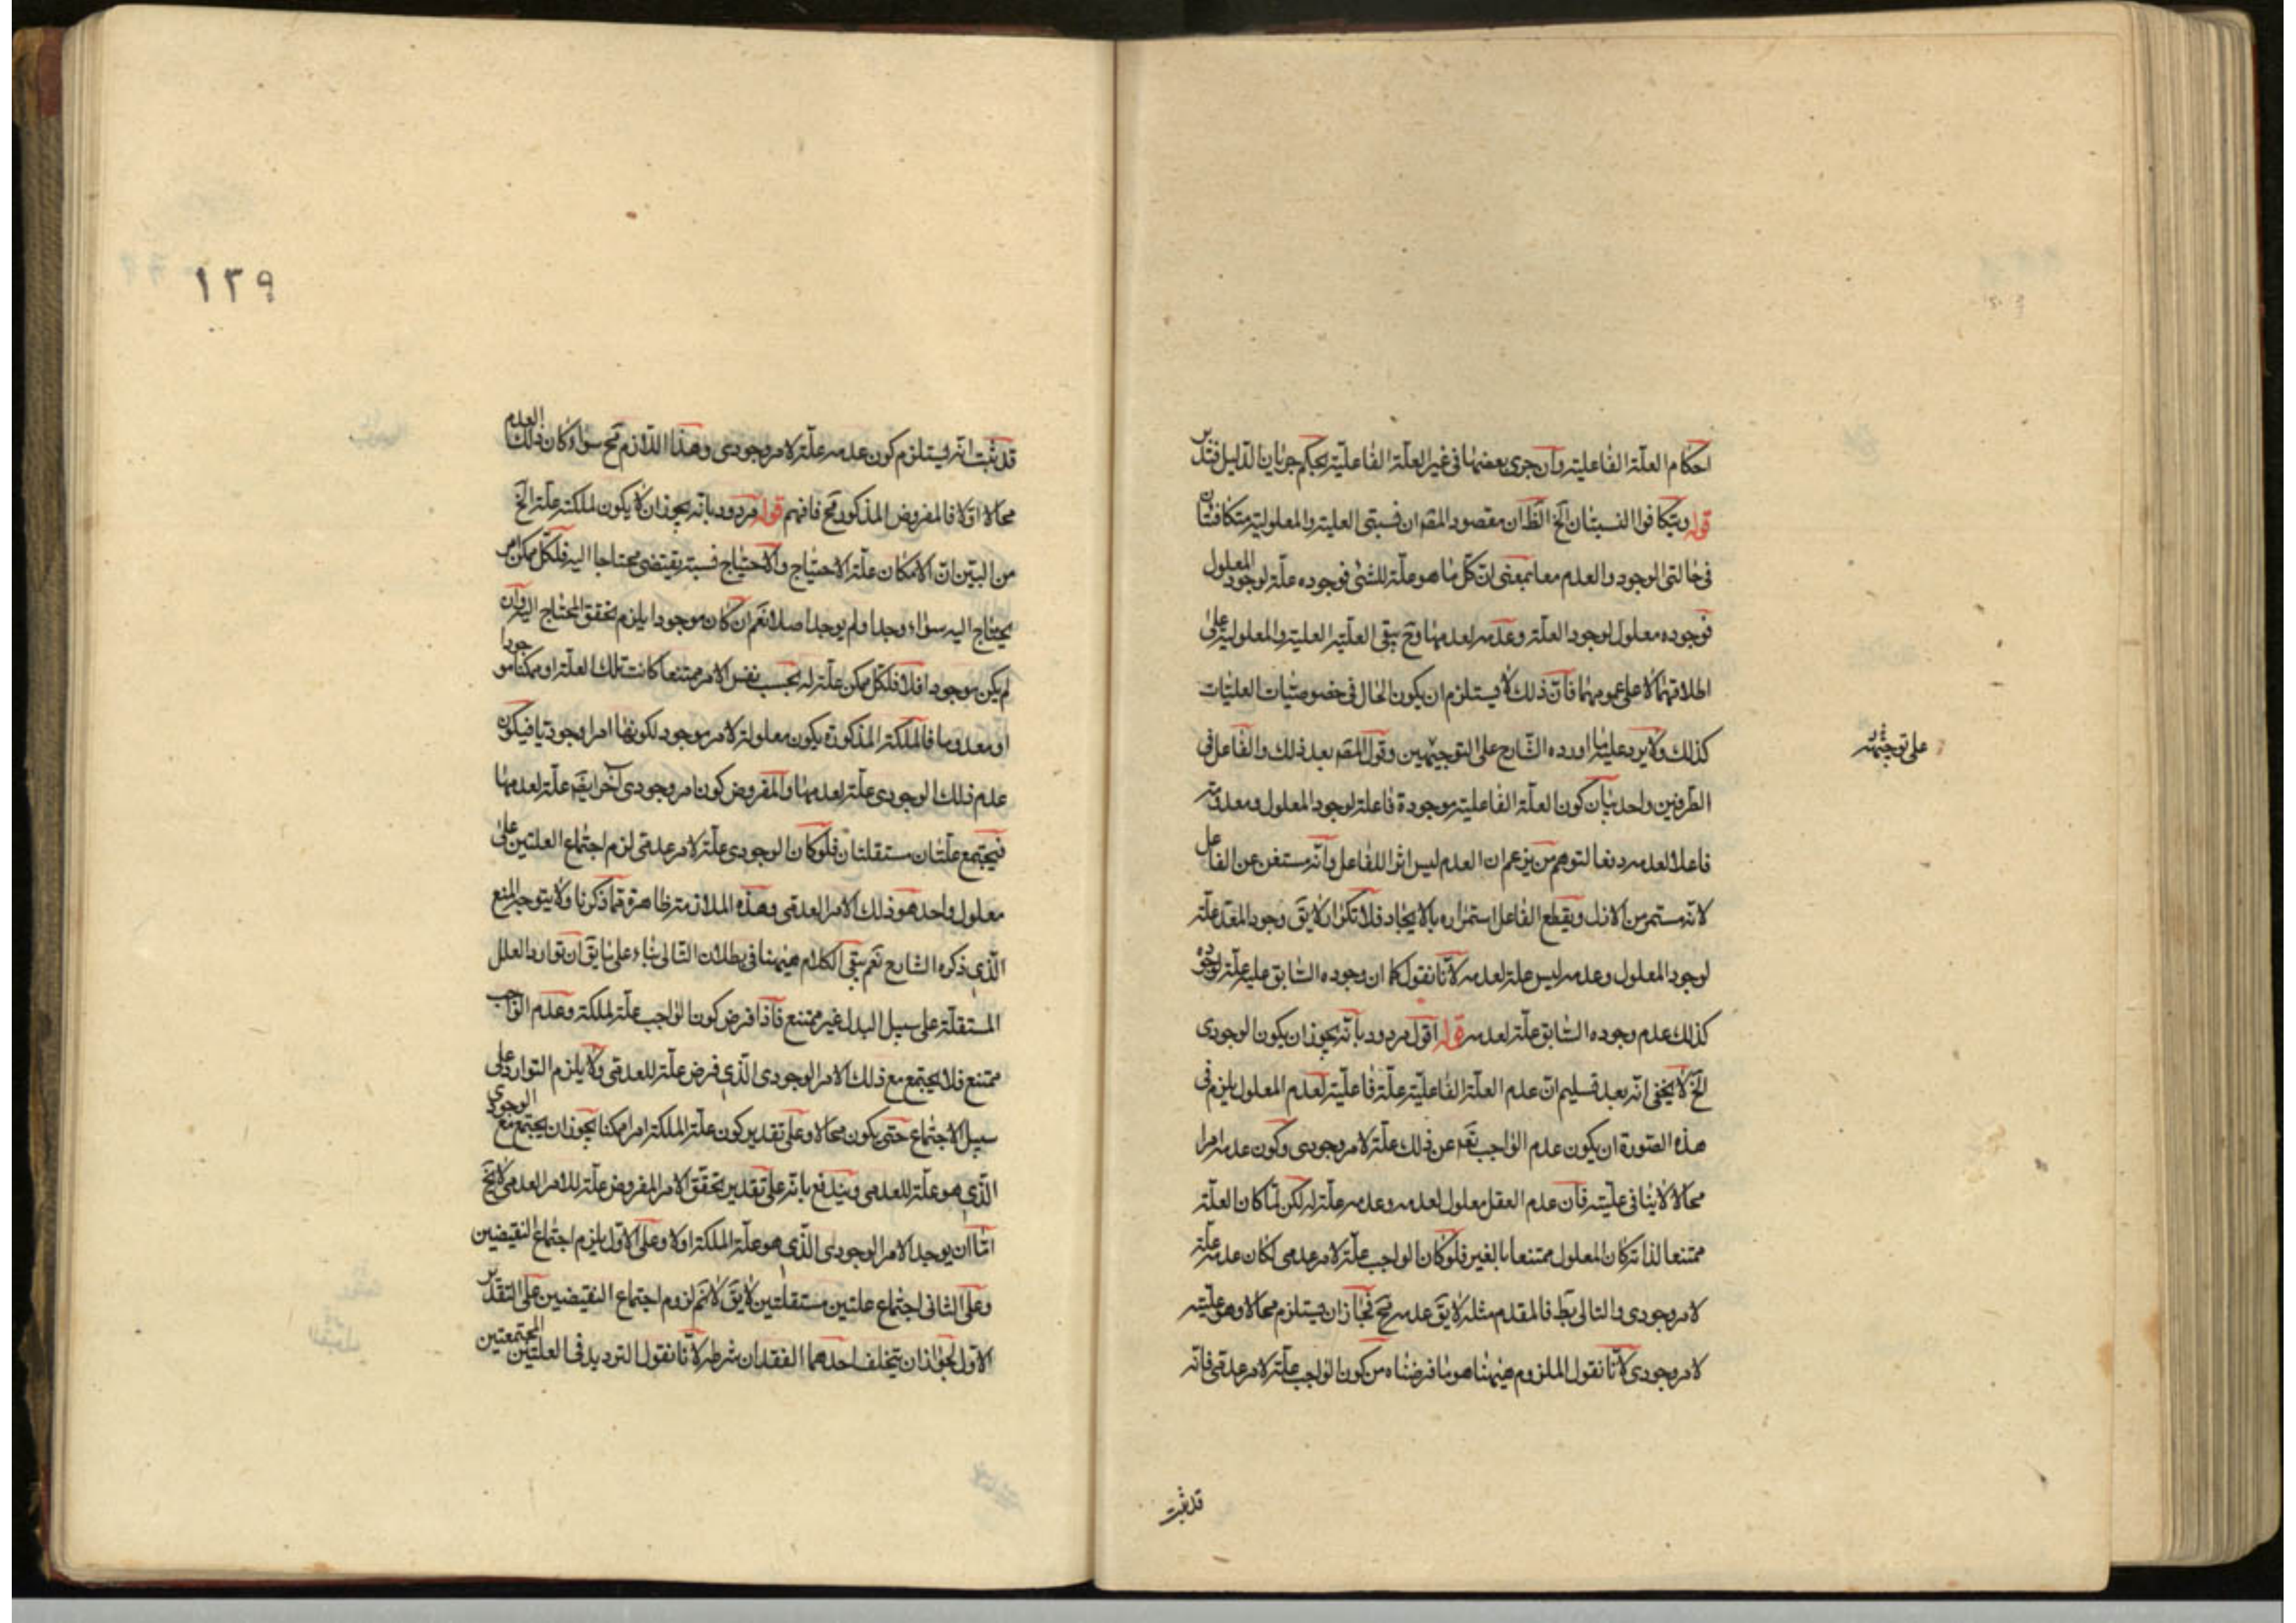 احكام العلّة الفاعلية وان جرى بعضها فى غير العلّة الفاعليّة بحكم جريان الدليل فتدبر
قوله ويتكافوا النسبتان الخ الظ ان مقصود المقم ان نسبتى العلية والمعلولية متكافئتان
فى حالتى الوجود والعدم معا بمعنى ان كلّ ما هو علّة للشئ فوجوده علّة لوجود المعلول
فوجوده معلول لوجود العلّة وعدمه لعدمها وح يبقى العليّة والمعلولية على
اطلاقهما لا على عمومهما فانّ ذلك لا يستلزم ان يكون الحال فى خصوصيّات العليّات
كذلك ولا يرد عليه ما اورده الشارح على التوجيهين وقول المقم بعد ذلك والفاعل فى
على توجيهه
الطرفين واحد بيان كون العلّة الفاعلية موجودة فاعلة لوجود المعلول ومعدومة
فاعلا لعدمه دفعا لتوهم من يزعم ان العدم ليس اثرا للفاعل وانّه مستغن عن الفاعل
لانّه مستمر من الازل ويقطع الفاعل استمراره بالايجاد فلا تكرار لا يقَ وجود المعدّ علّة
لوجود المعلول وعدمه ليس علة لعدمه لانّا نقول كما ان وجوده السّابق عليه علّة لوجوده
كذلك عدم وجوده السّابق علّة لعدمه قوله اقول مردود بانّه يجوز ان يكون الوجودى
الخ لا يخفى انّه بعد تسليم انّ عدم العلّة الفاعليّة علّة فاعليّة لعدم المعلول يلزم فى
هذه الصّورة ان يكون عدم الواجب تعَ عن ذلك علّة لامر وجودى وكون عدمه امرا
محالا لا ينافى عليّته فان عدم العقل معلول لعدمه وعدمه علّة له لكن لمّا كان العلّة
ممتنعا لذاته كان المعلول ممتنعا بالغير فلو كان الواجب علّة لامر عدمى لكان عدمه علّة
لامر وجودى والتالى بَط فالمقدم مثله لا يقَ عدمه مح فجاز ان يستلزم محالا وهو عليّته
لامر وجودى لانّا نقول الملزوم هيهنا هو ما فرضناه من كون الواجب علّة لامر عدمى فانّه
قد ثبت
١٣٩
قد ثبت انّه يستلزم كون عدمه علّة لامر وجودى وهذا اللازم مح سواء كان ذلك العدم
محالا اولا فالمفروض المذكور مح فافهم قوله مردود بانّه يجوز ان لا يكون لملكته علّة الخ
من البيّن انّ الامكان علّة الاحتياج والاحتياج نسبة يقتضى محتاجا اليه فلكل ممكن امر
يحتاج اليه سواء وجد او لم يوجد اصلا نعم ان كان موجودا يلزم تحقق المحتاج اليه وان
لم يكن موجودا فلا فلكلّ ممكن علّة له بحسب نفس الامر ممتنعا كانت تلك العلّة او ممكنا موجودا
او معدوما فالملكة المذكورة يكون معلولة لامر موجود لكونها امرا وجوديا فيكون
عدم ذلك الوجودى علّة لعدمها والمفروض كون امر وجودى آخر ايضَ علّة لعدمها
فيجتمع علّتان مستقلتان فلو كان الوجودى علّة لامر عدمى لزم اجتماع العلتين على
معلول واحد هو ذلك الامر العدمى وهذه الملازمة ظاهرة ممّا ذكرنا ولا يتوجه المنع
الّذى ذكره الشارح نعم بقى الكلام هيهنا فى بطلان التالى بناء على ما يقَ ان توارد العلل
المستقلّة على سبيل البدل غير ممتنع فاذا فرض كون الواجب علّة لملكة وعدم الواجب
ممتنع فلا يجتمع مع ذلك الامر الوجودى الّذى فرض علّة للعدمى ولا يلزم التوارد على
سبيل الاجتماع حتى يكون محالا وعلى تقدير كون علّة الملكة امرا ممكنا يجوز ان يجتمع مع الوجودى
الّذى هو علّة للعدمى ويندفع بانّه على تقدير تحقق الامر المفروض علّة للامر العدمى لا يخ
امّا ان يوجد الامر الوجودى الّذى هو علّة الملكة اولا وعلى الاوّل يلزم اجتماع النقيضين
وعلى الثانى اجتماع علتين مستقلّتين لا يقَ لانم لزوم اجتماع النقيضين على التقدير
الاوّل لجواز ان يتخلف احدهما لفقدان شرطه لانّا نقول الترديد فى العلّتين المجتمعتين